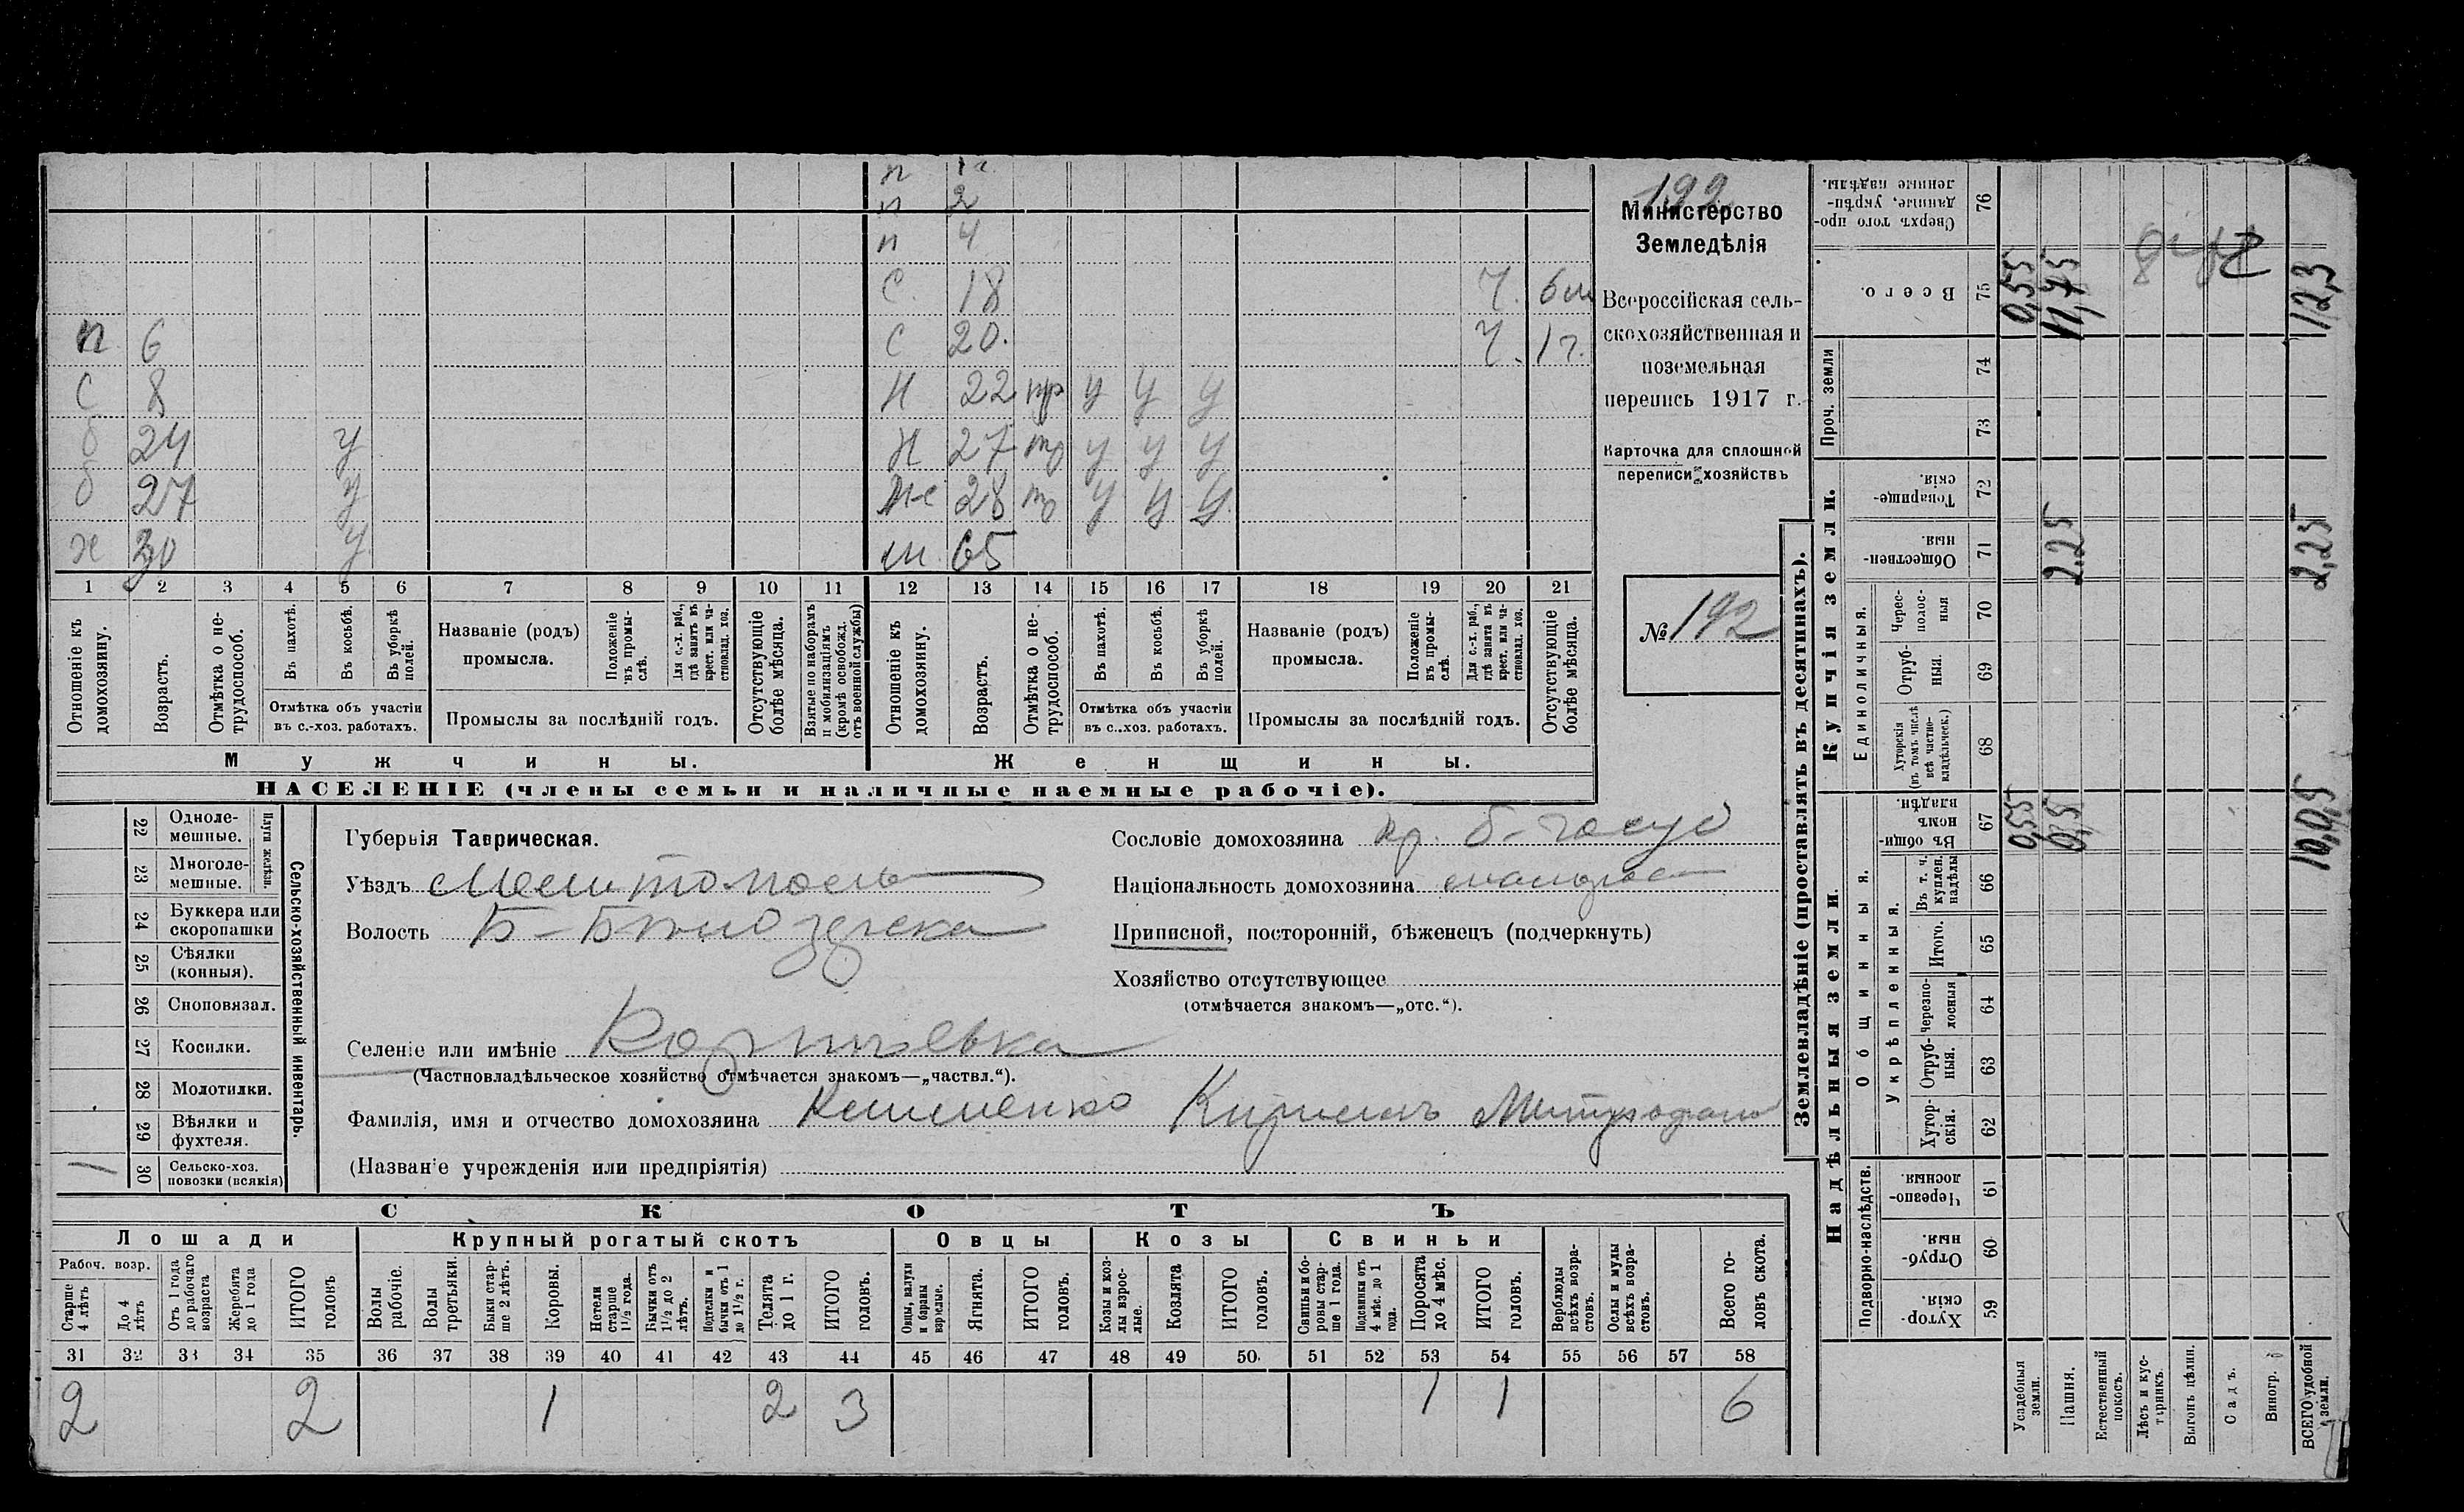 п 1 г.
п 2
п 4
С 18 У. 6 м
п 6 С 20. У. 1 г.
С 8 Н 22 тр у у у
б 24 у Н 27 тр у у у
б 27 у Ж-с 28 тр у у у
х 30 у м 65
1 2 3 4 5 6 7 8 9 10 11 12 13 14 15 16 17 18 19 20 21
Отношеніе къ домохозяину.
Возрастъ.
Отмѣтка о не-трудоспособ.
Въ пахотѣ.
Въ косьбѣ.
Въ уборкѣ полей.
Отмѣтка объ участіи
въ с.-хоз. работахъ.
Названіе (родъ)
промысла.
Положеніе въ промы-слѣ.
Для с.-х. раб., гдѣ занятъ въ крест. или ча-стновлад. хоз.
Промыслы за послѣдній годъ.
Отсутствующіе болѣе мѣсяца.
Взятые по наборамъ и мобилизаціямъ (кромѣ освобожд. отъ военной службы)
Отношеніе къ домохозяину.
Возрастъ.
Отмѣтка о не-трудоспособ.
Въ пахотѣ.
Въ косьбѣ.
Въ уборкѣ полей.
Отмѣтка объ участіи
въ с..хоз. работахъ.
Названіе (родъ)
промысла.
Положеніе въ промы-слѣ.
Для с.-х. раб., гдѣ занята въ крест. или ча-стновлад. хоз.
Промыслы за послѣдній годъ.
Отсутствующіе болѣе мѣсяца.
Мужчины. Женщины.
НАСЕЛЕНІЕ (члены семьи и наличные наемные рабочіе).
192
Министерство
Земледѣлія
Всероссійская сель-
скохозяйственная и
поземельная
перепись 1917 г.
Карточка для сплошной
переписи хозяйствъ
№ 192
22 Одноле-мешные.
23 Многоле-мешные.
Плуги желѣзн.
24 Буккера или скоропашки
25 Сѣялки (конныя).
26 Сноповязал.
27 Косилки.
28 Молотилки.
29 Вѣялки и фухтеля.
30 Сельско-хоз. повозки (всякія)
Сельско-хозяйственный инвентарь.
Губернія Таврическая.
Уѣздъ Мелитополь
Волость Б-Бѣлозерска
Селеніе или имѣніе
(Частновладѣльческое хозяйство отмѣчается знакомъ—„частвл.“).
Фамилія, имя и отчество домохозяина
(Названіе учрежденія или предпріятія)
Сословіе домохозяина кр. б-госуд
Національность домохозяина малорос
Приписной, посторонній, бѣженецъ (подчеркнуть)
Хозяйство отсутствующее
(отмѣчается знакомъ—„отс.“).
СКОТЪ
Лошади Крупный рогатый скотъ Овцы Козы Свиньи
Рабоч. возр.
Старше 4 лѣтъ
До 4 лѣтъ
Отъ 1 года до рабочаго возраста
Жеребята до 1 года
ИТОГО головъ
Волы рабочіе.
Волы третьяки.
Быки стар-ше 2 лѣтъ.
Коровы.
Нетели старше 1½ года.
Бычки отъ 1½ до 2 лѣтъ.
Подтелки и бычки отъ 1 до 1½ г.
Телята до 1 г.
ИТОГО головъ.
Овцы, валухи и бараны взрослые.
Ягнята.
ИТОГО головъ.
Козы и коз-лы взрос-лые.
Козлята
ИТОГО головъ.
Свиньи и бо-ровы стар-ше 1 года.
Подсвинки отъ 4 мѣс. до 1 года.
Поросята до 4 мѣс.
ИТОГО головъ.
Верблюды всѣхъ возра-стовъ.
Ослы и мулы всѣхъ возра-стовъ.
Всего го-ловъ скота.
31 32 33 34 35 36 37 38 39 40 41 42 43 44 45 46 47 48 49 50. 51 52 53 54 55 56 57 58
2 2 1 2 3 1 1 6
Землевладѣніе (проставлять въ десятинахъ).
Надѣльныя земли. Купчія земли. Проч. земли
Подворно-наслѣдств.
Общинныя.
Укрѣпленныя.
Единоличныя.
Хутор-скія. 59
Отруб-ныя. 60
Черезпо-лосныя. 61
Хутор-скія. 62
Отруб-ныя. 63
Черезпо-лосныя 64
Итого. 65
Въ т. ч. куплен. надѣлы 66
Въ общи-номъ владѣн. 67
Хуторскія (въ томъ числѣ всѣ частно-владѣльческ.) 68
Отруб-ныя. 69
Черес-полос-ныя 70
Обществен-ныя. 71
Товарище-скія. 72
73
74
Всего. 75
Сверхъ того про-данные, укрѣп-ленные надѣлы. 76
Усадебныя земли. 0,55 0,55
Пашня. 2,25 11,75
Естественный покосъ.
Лѣсъ и кус-тарникъ.
Выгонъ цѣлин.
Садъ.
Виногр.
ВСЕГО удобной земли. 10,05 2,25 12,3